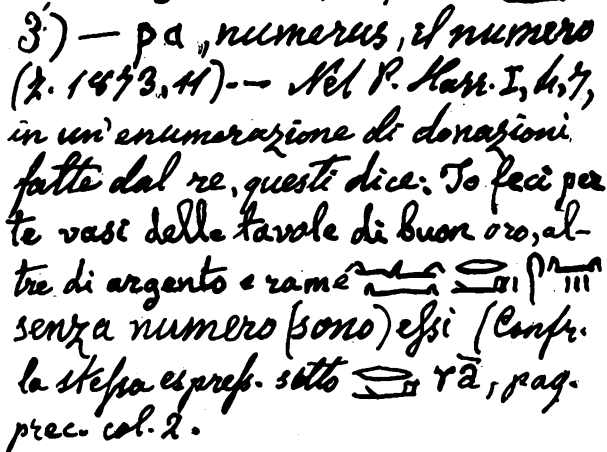 3) — pa „numerus, il numero
(Z. 1873, 11).— Nel P. Harr. I, 4, 7,
in un'enumerazione di donazioni
fatte dal re, questi dice: Io feci per
te vasi delle tavole di buon oro, al-
tre di argento e rame
senza numero (sono) essi (Confr.
la stessa espress. sotto rā, pag.
prec. col. 2.